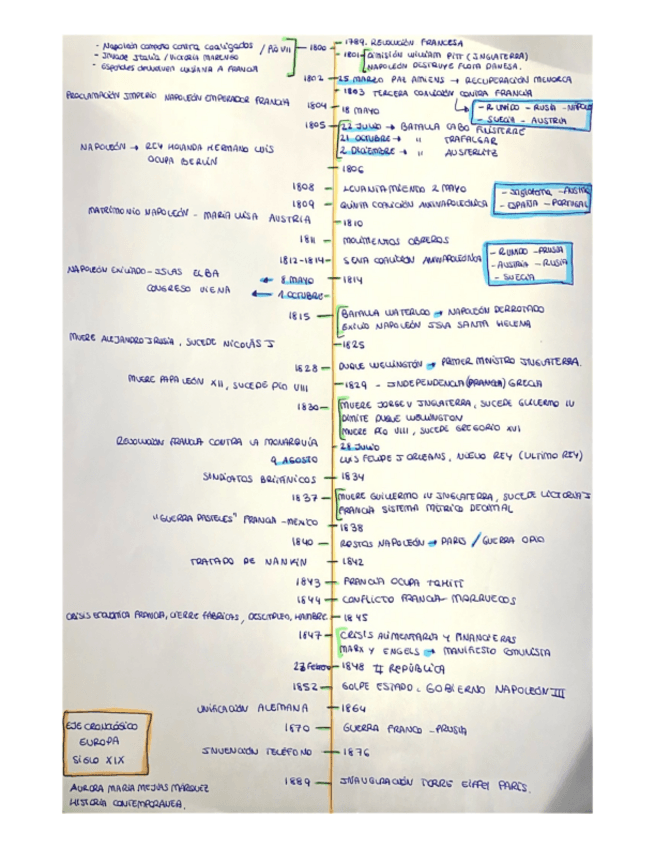 - Napoleón campaña contra coaligados / PÍO VII
- Invade Italia / Victoria MARENGO
- Españoles devuelven Luisiana a Francia
1800
1789. REVOLUCIÓN FRANCESA
1801
DIMISIÓN WILLIAM PITT (INGLATERRA)
NAPOLEÓN DESTRUYE FLOTA DANESA.
1802
25 MARZO PAZ AMIENS → RECUPERACIÓN MENORCA
1803 TERCERA COALICIÓN CONTRA FRANCIA
- R. UNIDO - RUSIA - NÁPOL
- SUECIA - AUSTRIA
PROCLAMACIÓN IMPERIO NAPOLEÓN EMPERADOR FRANCIA
1804
18 MAYO
1805
22 JULIO → BATALLA CABO FINISTERRE
21 OCTUBRE → " TRAFALGAR
2 DICIEMBRE → " AUSTERLITZ
NAPOLEÓN → REY HOLANDA HERMANO LUIS
OCUPA BERLÍN
1806
1808
LEVANTAMIENTO 2 MAYO
1809
QUINTA COALICIÓN ANTINAPOLEÓNICA
- Inglaterra - AUSTRI
- ESPAÑA - PORTUGAL
MATRIMONIO NAPOLEÓN - MARÍA LUISA AUSTRIA
1810
1811
MOVIMIENTOS OBREROS
1812-1814
SEXTA COALICIÓN ANTINAPOLEÓNICA
- R. UNIDO - PRUSIA
- AUSTRIA - RUSIA
- SUECIA
NAPOLEÓN EXILIADO - ISLAS ELBA ← 8 MAYO
1814
CONGRESO VIENA ← 1 OCTUBRE
1815
BATALLA WATERLOO → NAPOLEÓN DERROTADO
EXILIO NAPOLEÓN ISLA SANTA HELENA
MUERE ALEJANDRO I RUSIA, SUCEDE NICOLÁS I
1825
1828
DUQUE WELLINGTON → PRIMER MINISTRO INGLATERRA.
MUERE PAPA LEÓN XII, SUCEDE PÍO VIII
1829 - INDEPENDENCIA (FRANCIA) GRECIA
1830
MUERE JORGE V INGLATERRA, SUCEDE GUILLERMO IV
DIMITE DUQUE WELLINGTON
MUERE PÍO VIII, SUCEDE GREGORIO XVI
REVOLUCIÓN FRANCIA CONTRA LA MONARQUÍA
28 JULIO
9 AGOSTO
LUIS FELIPE I ORLEANS, NUEVO REY (ÚLTIMO REY)
SINDICATOS BRITÁNICOS
1834
1837
MUERE GUILLERMO IV INGLATERRA, SUCEDE VICTORIA I
FRANCIA SISTEMA MÉTRICO DECIMAL
"GUERRA PASTELES" FRANCIA - MÉXICO
1838
1840
RESTOS NAPOLEÓN → PARÍS / GUERRA OPIO
TRATADO DE NANKÍN
1842
1843
FRANCIA OCUPA TAHITÍ
1844
CONFLICTO FRANCIA - MARRUECOS
CRISIS ECONÓMICA FRANCIA, CIERRE FÁBRICAS, DESEMPLEO, HAMBRE
1845
1847
CRISIS ALIMENTARIA Y FINANCIERAS
MARX Y ENGELS → MANIFIESTO COMUNISTA
23 FEBRERO
1848 II REPÚBLICA
1852
GOLPE ESTADO. GOBIERNO NAPOLEÓN III
UNIFICACIÓN ALEMANA
1864
1870
GUERRA FRANCO - PRUSIA
INVENCIÓN TELÉFONO
1876
1889
INAUGURACIÓN TORRE EIFFEL PARÍS.
EJE CRONOLÓGICO
EUROPA
SIGLO XIX
AURORA MARÍA MEJÍAS MÁRQUEZ
HISTORIA CONTEMPORÁNEA.